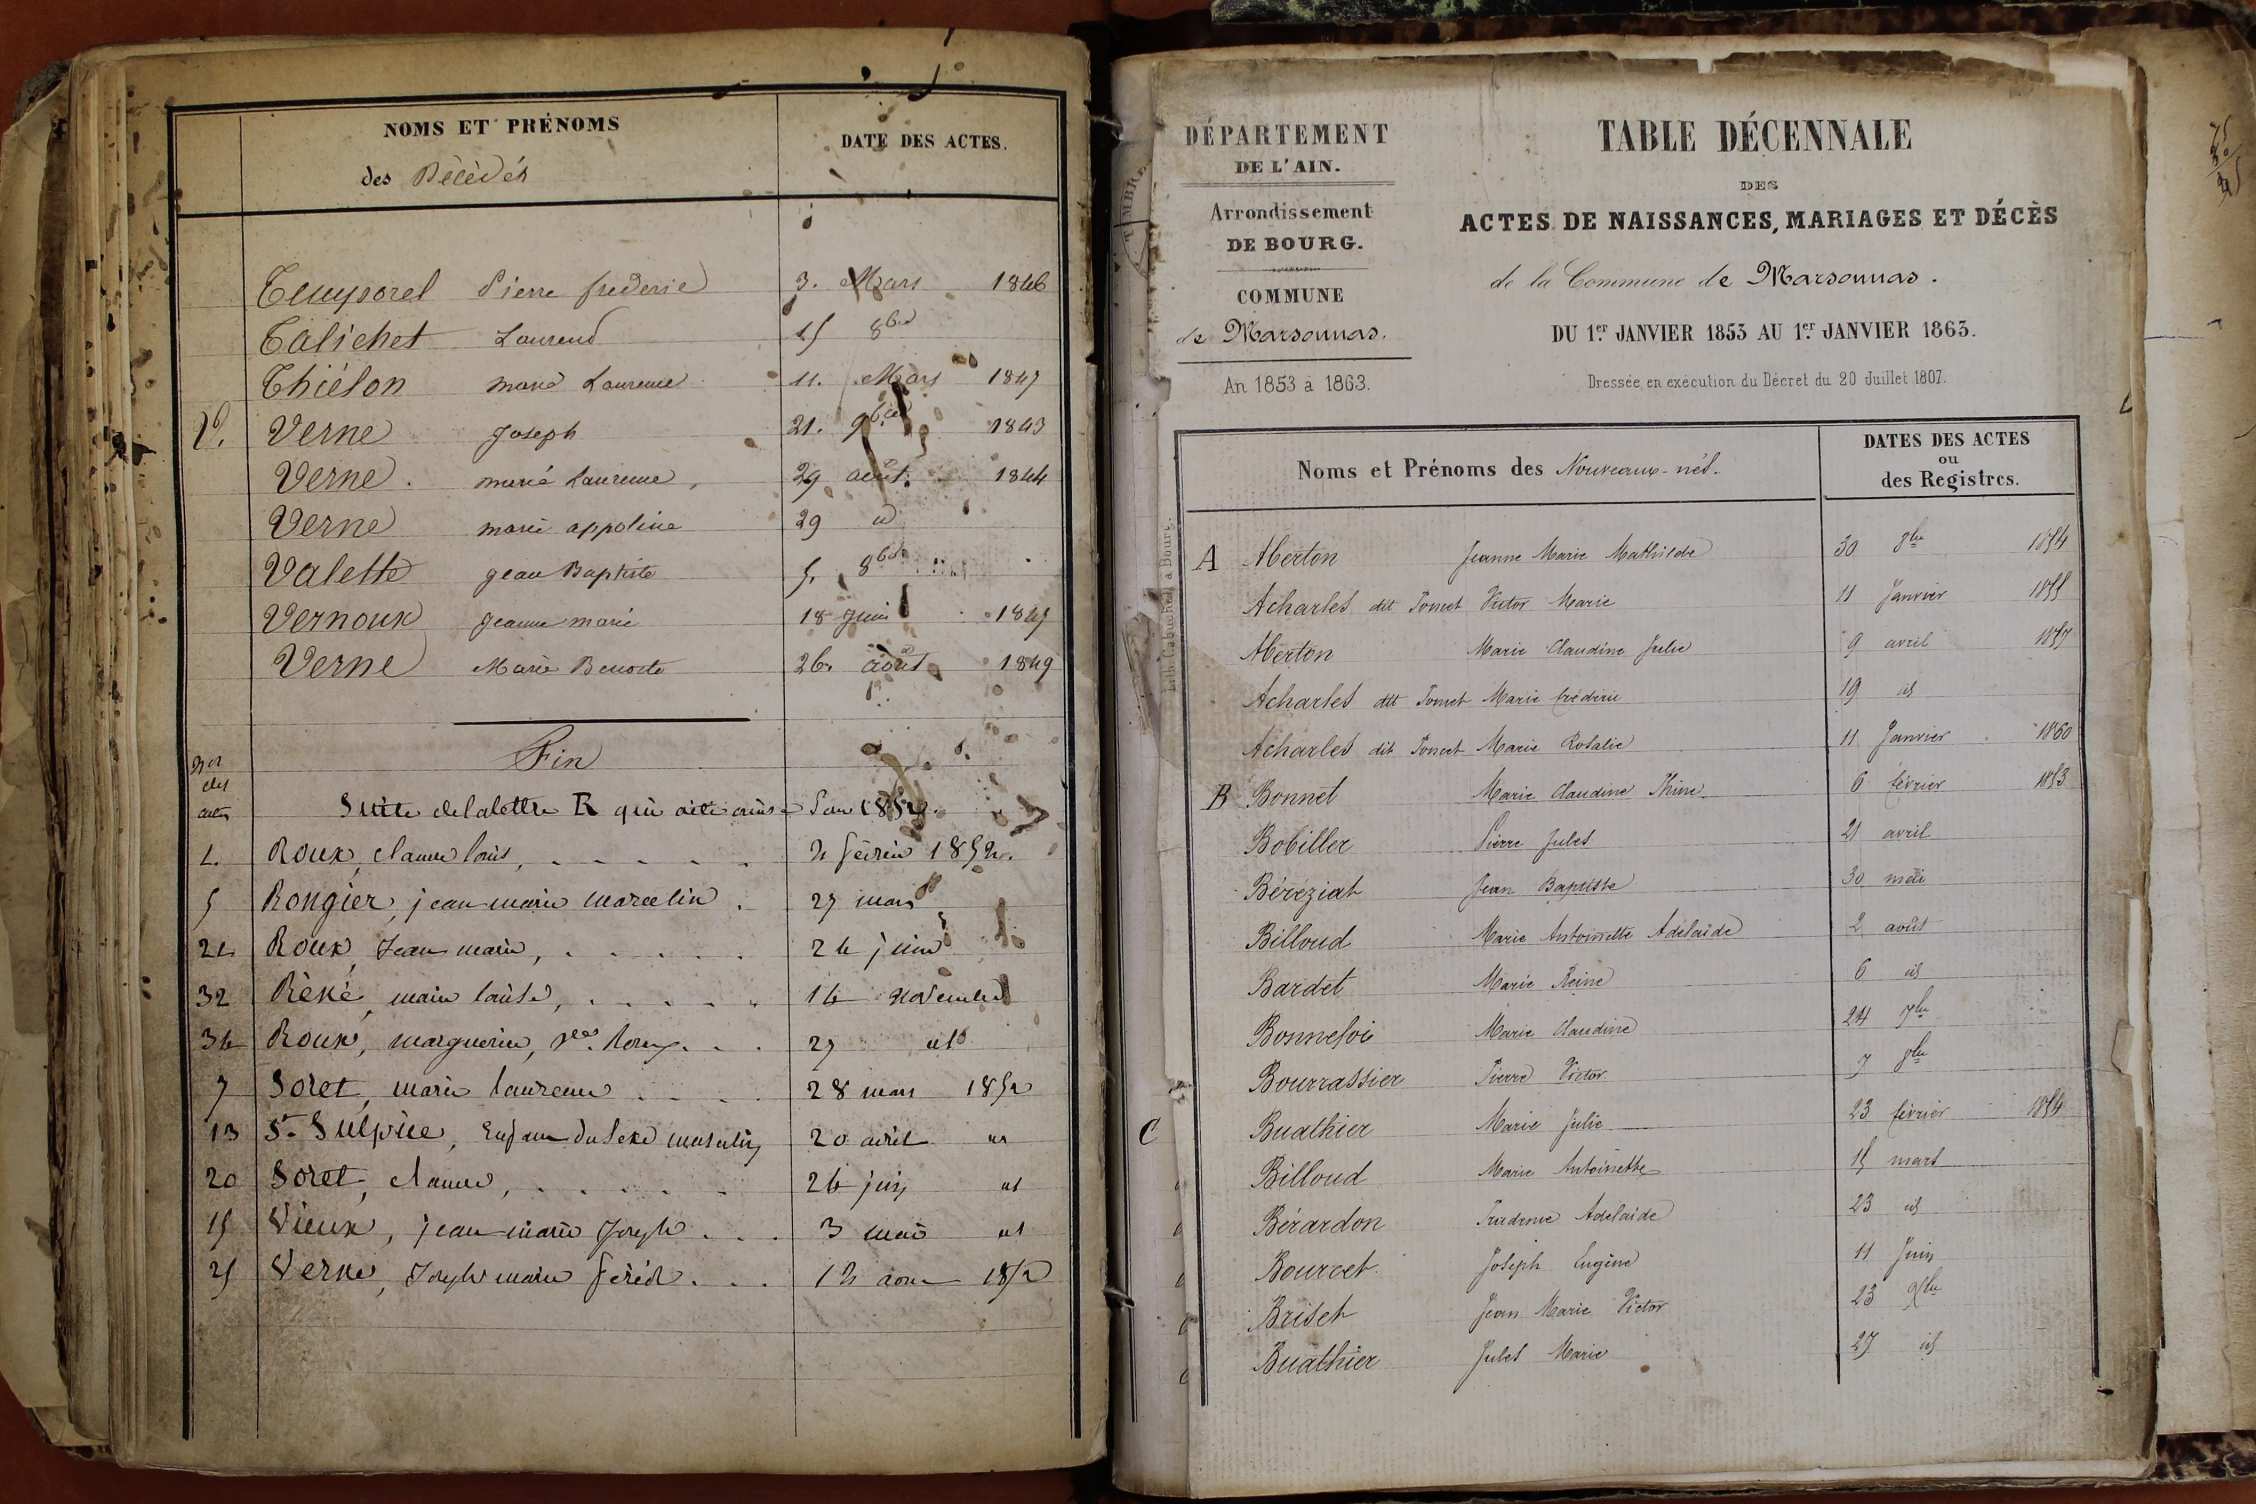 NOMS ET PRÉNOMS
des Décédés
DATE DES ACTES.
Pierre frederic 3. Mars 1846
Talichet Laurend 15 8bre
Thiélon marie Laurence 11. Mars 1847
V. Verne Joseph 21. 9bre 1843
Verne marie Laurence, 29 août. 1844
Verne marie appoline 29 id
Valette jean Baptiste 5. 8bre
Vernoux jeanne marie 18 juin 1845
Verne Marie Benoite 26. août 1849
Fin
Nos
des
actes
Suite de la lettre R qui a été omise Pour 1852.
1. Roux, claude louis, . . . . . 2 février 1852.
5 Rongier, jean marie marcelin . 27 mars
21 Roux, Jean marie, . . . . . 26 juin
32 Réné, marie louise, . . . . . 16 novembre
36 Roux, marguerite, . . . 27 id
7 Soret, marie laurence . . . . 28 mars 1852
13 St. Sulpice, Enfant du Sexe masculin 20 avril id
20 Soret, claude, . . . . . 26 juin id
15 Vieux, jean marie Joseph . . . 3 mai id
25 Verne, Joseph marie fréd. . . . 12 aout 1852
DÉPARTEMENT
DE L'AIN.
Arrondissement
DE BOURG.
COMMUNE
de Marsonnas.
An 1853 à 1863.
TABLE DÉCENNALE
DES
ACTES DE NAISSANCES, MARIAGES ET DÉCÈS
de la Commune de Marsonnas.
DU 1er JANVIER 1853 AU 1er JANVIER 1863.
Dressée en exécution du Décret du 20 Juillet 1807.
Noms et Prénoms des Nouveaux-nés.
DATES DES ACTES
ou
des Registres.
A Aberton Jeanne Marie Mathilde 30 8bre 1854
Acharles dit Poncet Victor Marie 11 Janvier 1855
Aberton Marie Claudine Julie 9 avril 1857
Acharles dit Poncet Marie 19 id
Acharles dit Poncet Marie Rosalie 11 Janvier 1860
B Bonnet Marie Claudine 6 février 1853
Bobiller Pierre Jules 21 avril
Béréziat Jean Baptiste 30 mai
Billoud Marie Antoinette Adélaïde 2 août
Bardet Marie Reine 6 id
Bonnefoi Marie Claudine 24 7bre
Bourrassier Pierre Victor 7 8bre
C
Buathier Marie Julie 23 février 1854
Billoud Marie Antoinette 15 mars
Bérardon Prudence Adélaïde 23 id
Bourcet Joseph Eugène 11 Juin
Brisch Jean Marie Victor 23 9bre
Buathier Jules Marie 27 id
Lith. Cabuchet, à Bourg.
TIMBRE